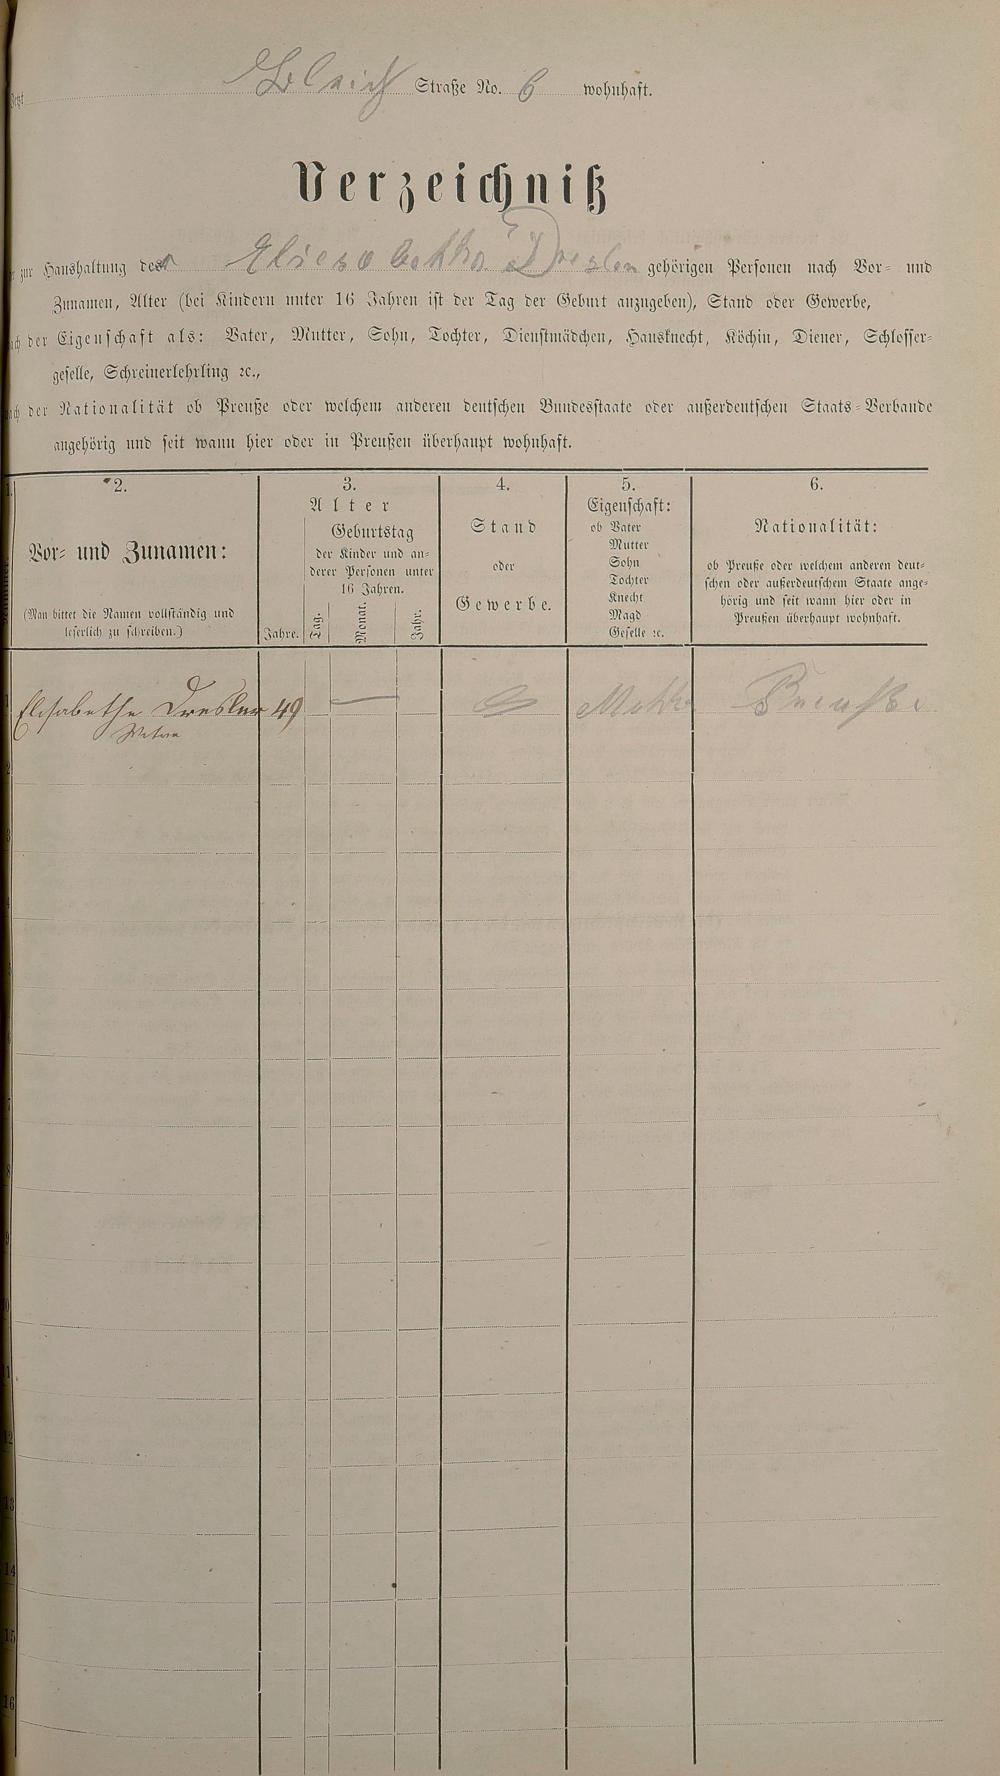 Jetzt Bleich Straße No. 6 wohnhaft.
Verzeichniß
zur Haushaltung der Eliesabetha Dresler gehörigen Personen nach Vor- und
Zunamen, Alter (bei Kindern unter 16 Jahren ist der Tag der Geburt anzugeben), Stand oder Gewerbe,
nach der Eigenschaft als: Vater, Mutter, Sohn, Tochter, Dienstmädchen, Hausknecht, Köchin, Diener, Schlosser-
geselle, Schreinerlehrling ꝛc.,
nach der Nationalität ob Preuße oder welchem anderen deutschen Bundesstaate oder außerdeutschen Staats-Verbande
angehörig und seit wann hier oder in Preußen überhaupt wohnhaft.
1. 2. 3. 4. 5. 6.
Vor- und Zunamen:
(Man bittet die Namen vollständig und
leserlich zu schreiben.)
Alter
Jahre.
Geburtstag
der Kinder und an-
derer Personen unter
16 Jahren.
Tag. Monat. Jahr.
Stand
oder
Gewerbe.
Eigenschaft:
ob Vater
Mutter
Sohn
Tochter
Knecht
Magd
Geselle ꝛc.
Nationalität:
ob Preuße oder welchem anderen deut-
schen oder außerdeutschem Staate ange-
hörig und seit wann hier oder in
Preußen überhaupt wohnhaft.
1 Elisabethe Dresler 49 — Preuße
2
3
4
5
6
7
8
9
10
11
12
13
14
15
16